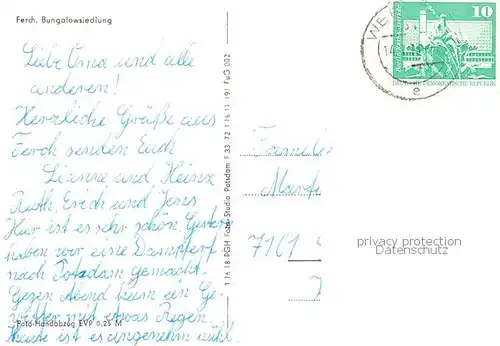 Ferch. Bungalowsiedlung
Liebe Oma und alle
anderen!
Herzliche Grüße aus
Ferch senden Euch
Lianne und Heinz
Ruth, Erich und Jens
Hier ist es sehr schön. Gestern
haben wir eine Dampferf
nach Potsdam gemacht.
Gegen Abend kam ein Ge-
witter mit etwas Regen.
heute ist es angenehm kühl
Foto-Handabzug EVP 0.25 M
1 16 18 PGH Foto-Studio Potsdam F 33 72 1 16 11 191 IwG 002
10
DEUTSCHE DEMOKRATISCHE REPUBLIK
WE
e
Familie
7161
privacy protection
Datenschutz